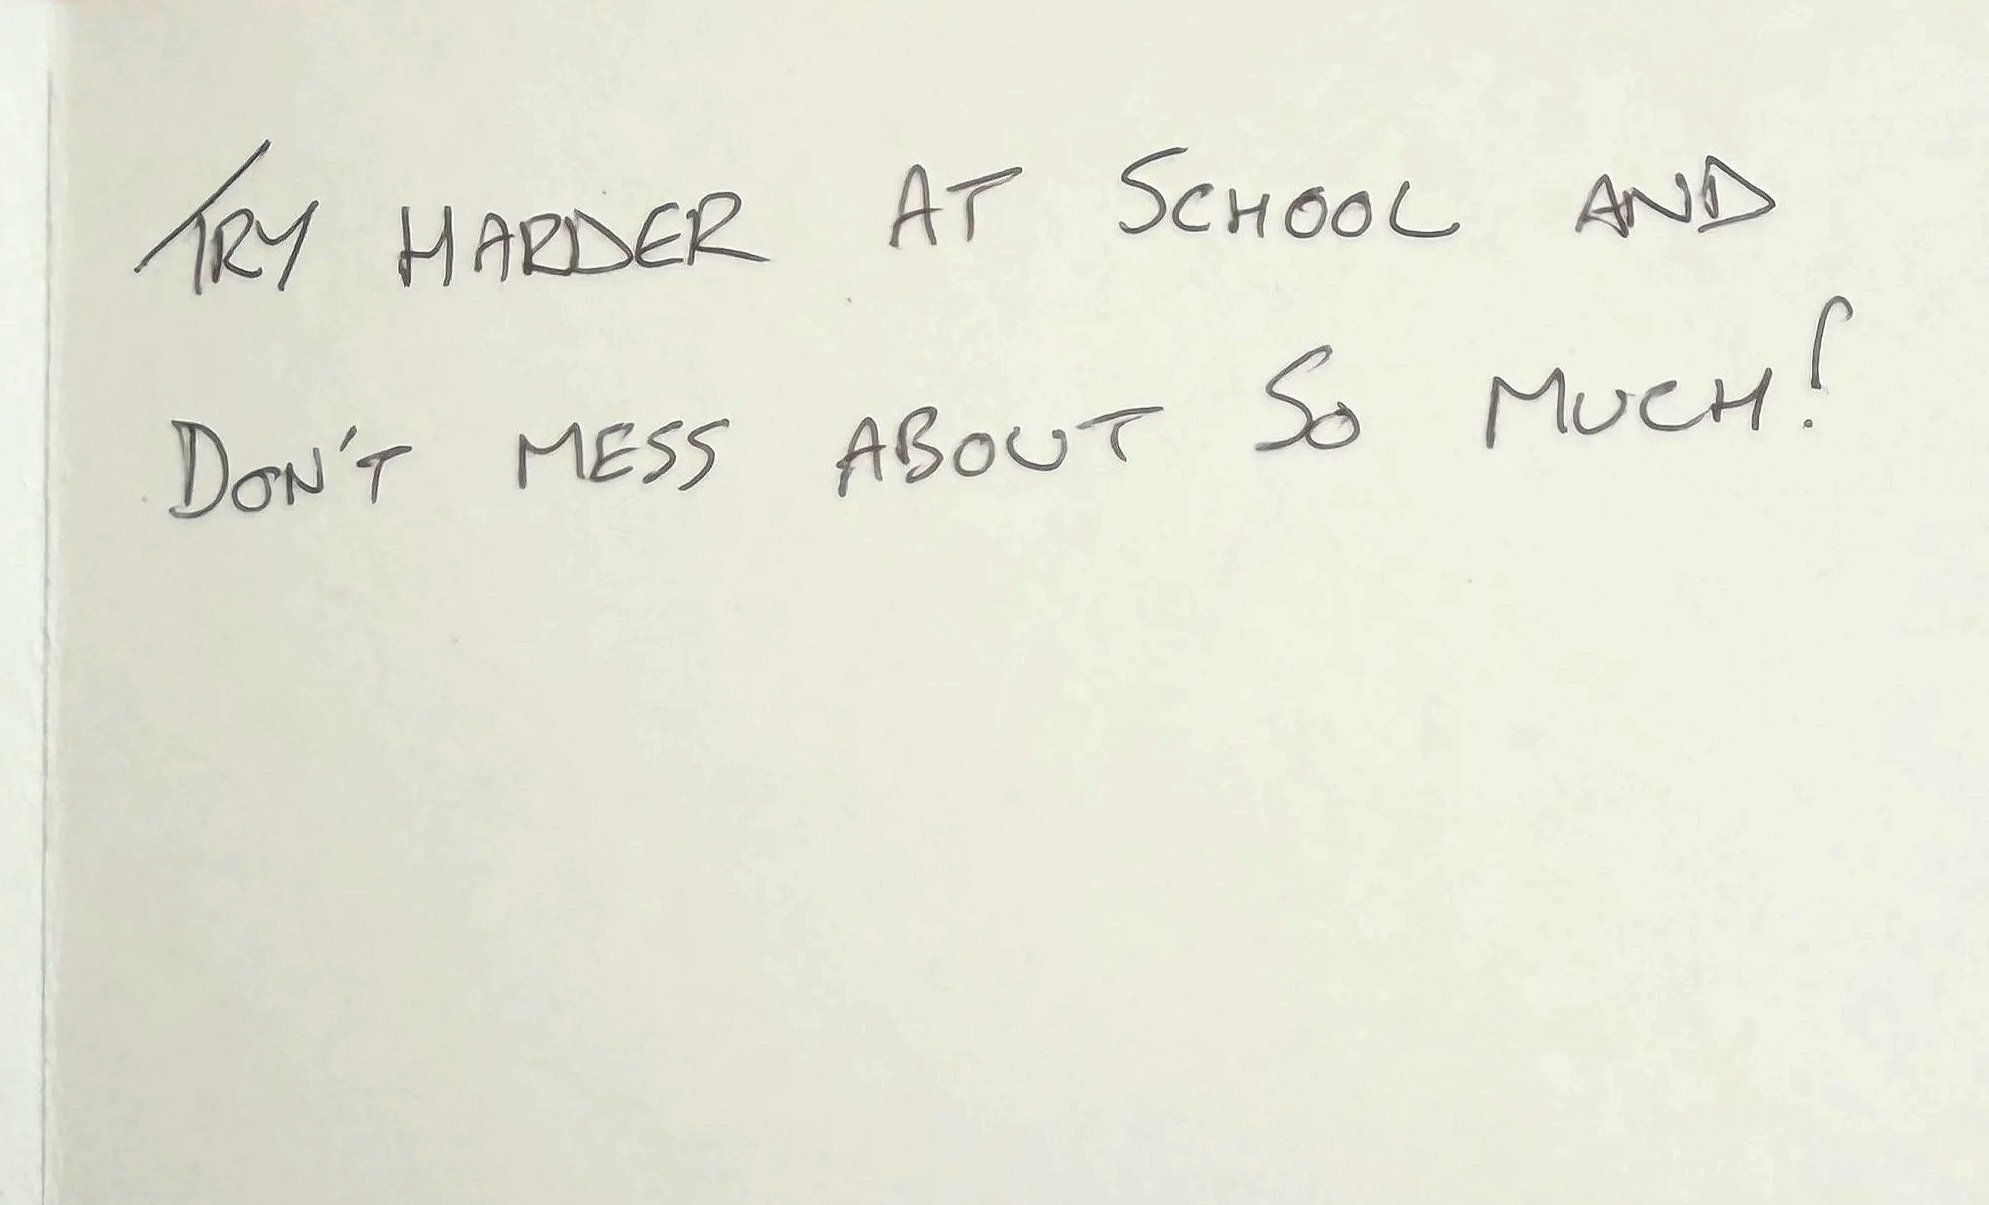 TRY HARDER AT SCHOOL AND
DON'T MESS ABOUT SO MUCH!